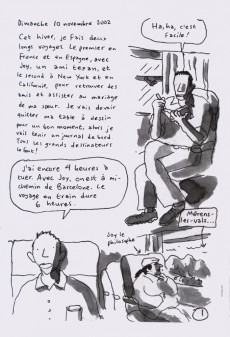 Dimanche 10 novembre 2002
Cet hiver, je fais deux
longs voyages. Le premier en
France et en Espagne, avec
Joy, un ami texan, et
le second à New York et en
Californie, pour retrouver des
amis et assister au mariage
de ma sœur. Je vais devoir
quitter ma table à dessin
pour un bon moment, alors je
vais tenir un journal de bord.
Tous les grands dessinateurs
le font!
Ha, ha, c'est
facile!
J'ai encore 4 heures à
tuer. Avec Joy, on est à mi-
chemin de Barcelone. Le
voyage en train dure
6 heures.
Joy le
philosophe
les-vals...
1